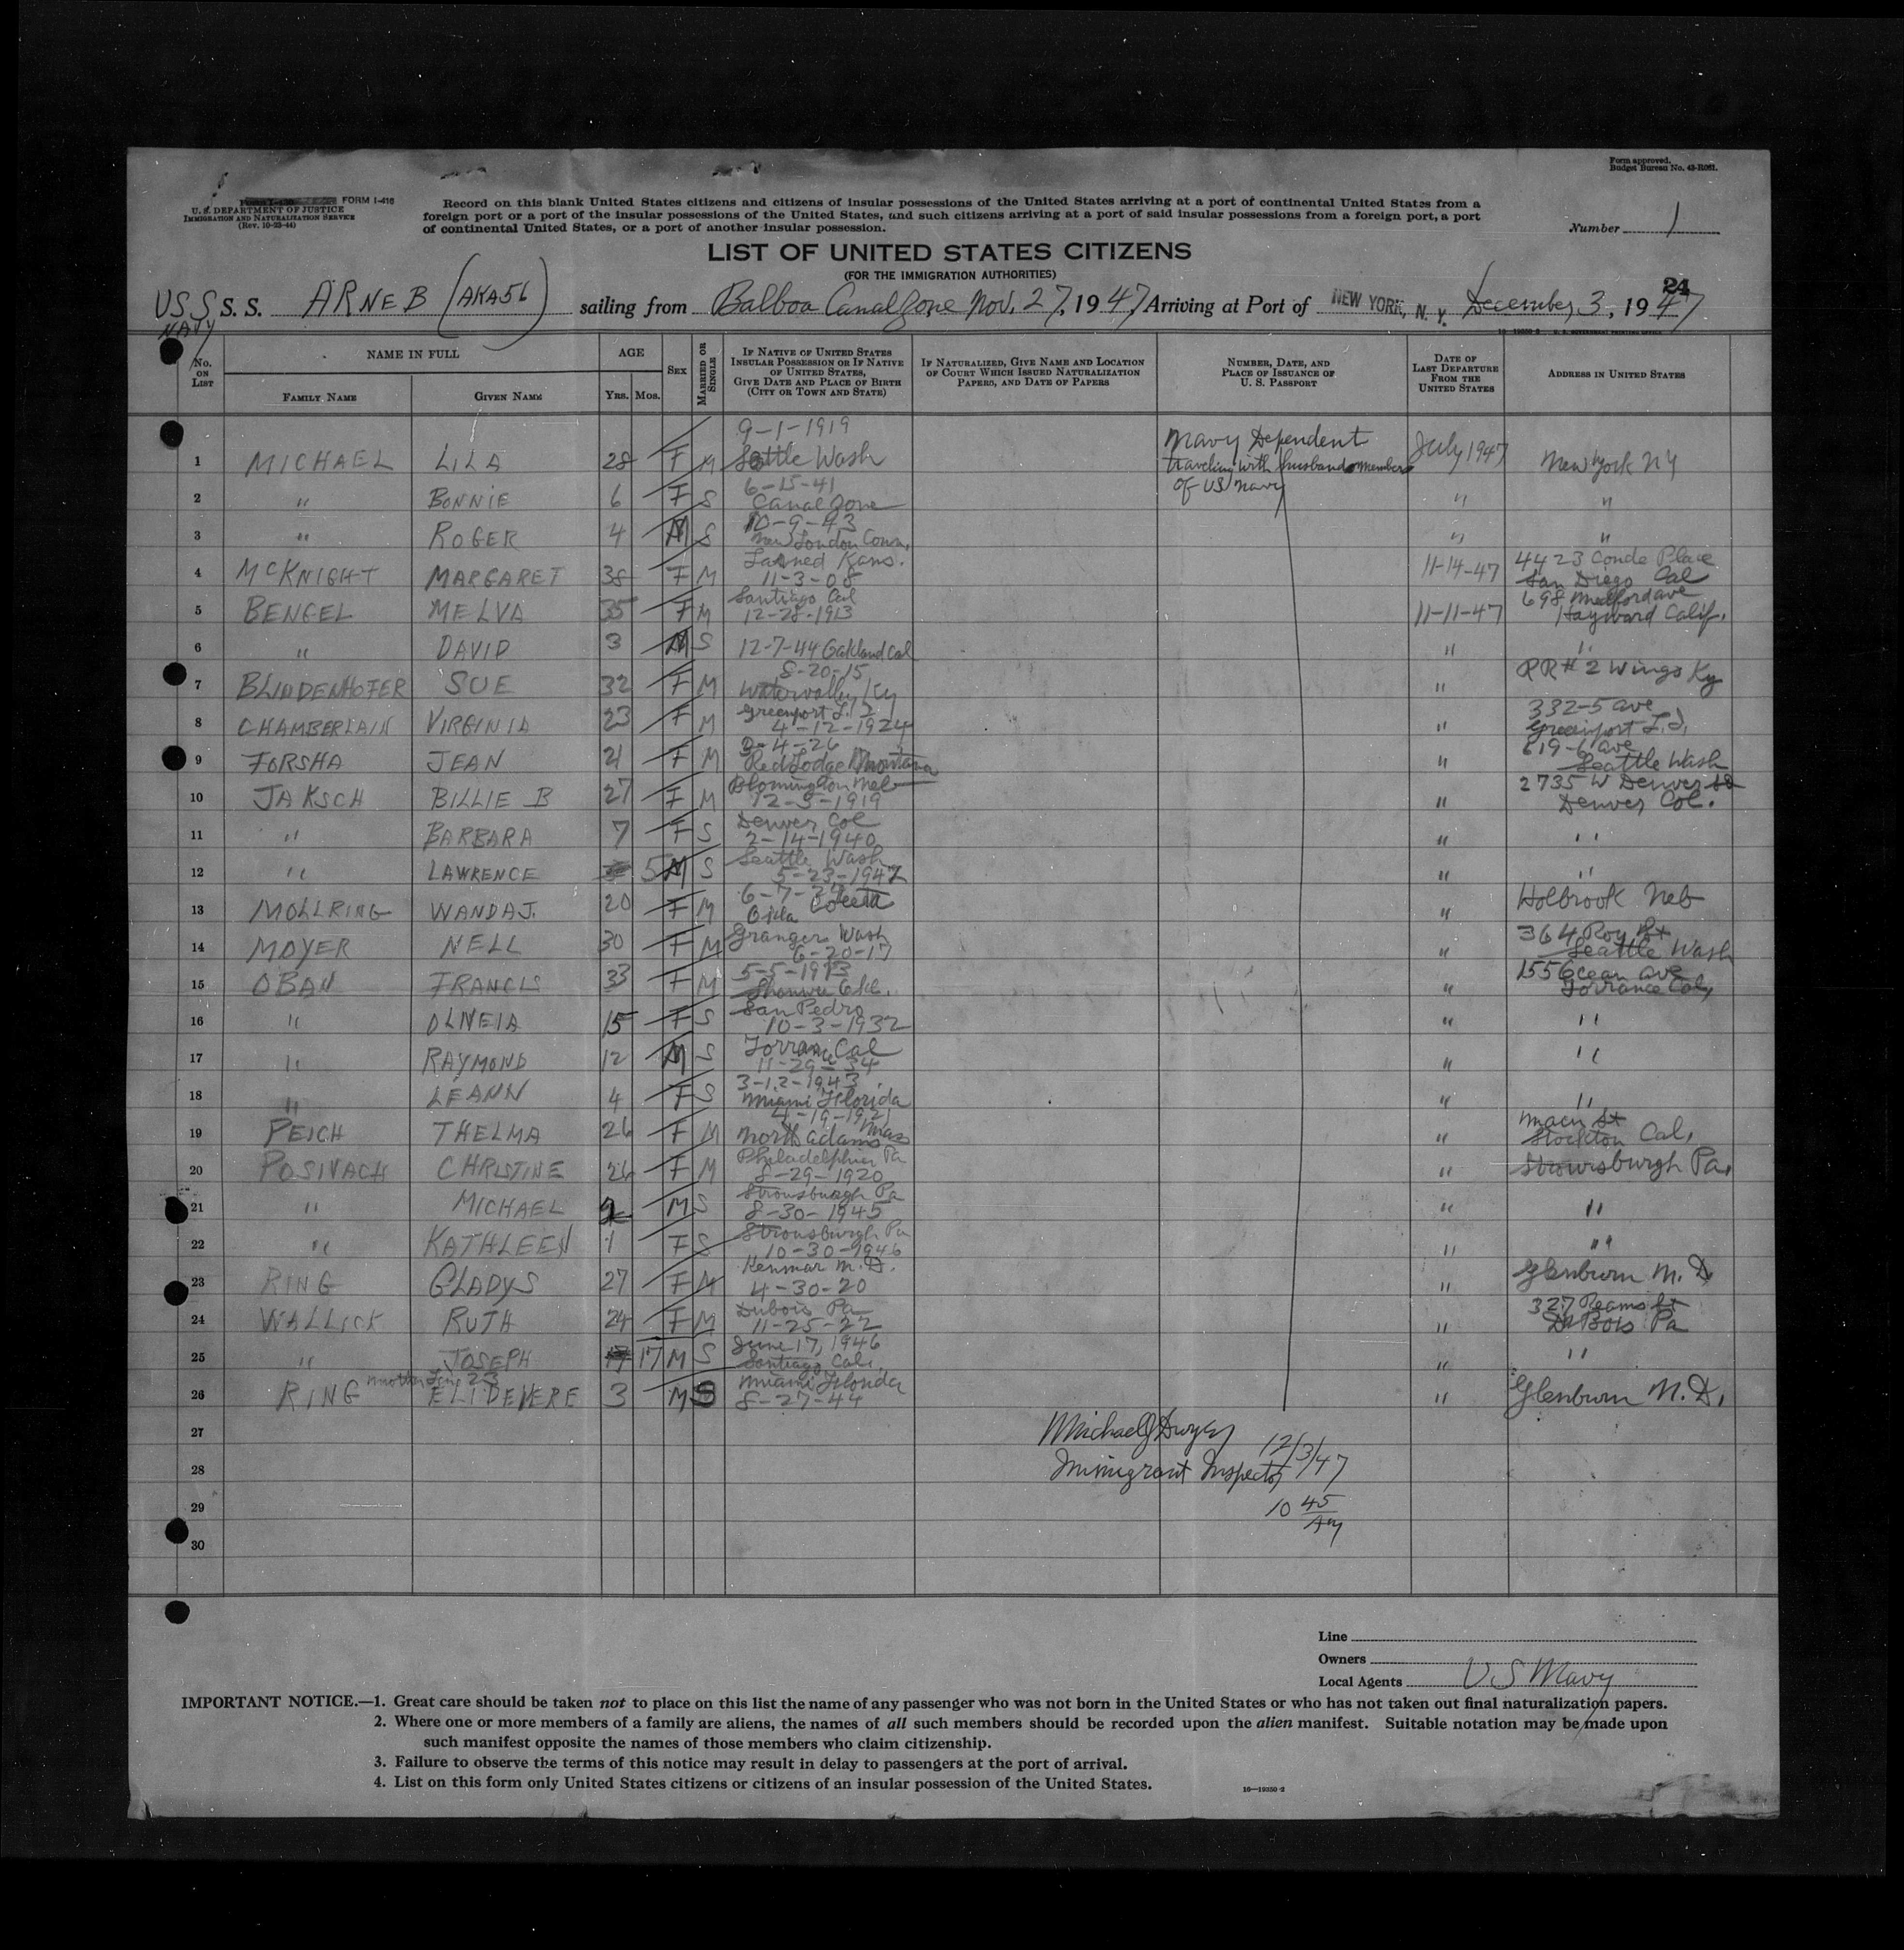 Form approved.
Budget Bureau No. 43-R061.
FORM I-416
U. S. DEPARTMENT OF JUSTICE
IMMIGRATION AND NATURALIZATION SERVICE
(Rev. 10-23-44)
Record on this blank United States citizens and citizens of insular possessions of the United States arriving at a port of continental United States from a
foreign port or a port of the insular possessions of the United States, and such citizens arriving at a port of said insular possessions from a foreign port, a port
of continental United States, or a port of another insular possession.
Number 1
LIST OF UNITED STATES CITIZENS
(FOR THE IMMIGRATION AUTHORITIES)
24
USS S. S. ARNEB (AKA56) sailing from Balboa Canal Zone Nov. 27, 1947, Arriving at Port of NEW YORK, N. Y. December 3, 1947
NAVY
No. ON LIST
NAME IN FULL
FAMILY NAME
GIVEN NAME
AGE
YRS. MOS.
SEX
MARRIED OR SINGLE
IF NATIVE OF UNITED STATES INSULAR POSSESSION OR IF NATIVE OF UNITED STATES, GIVE DATE AND PLACE OF BIRTH (CITY OR TOWN AND STATE)
IF NATURALIZED, GIVE NAME AND LOCATION OF COURT WHICH ISSUED NATURALIZATION PAPERS, AND DATE OF PAPERS
NUMBER, DATE, AND PLACE OF ISSUANCE OF U. S. PASSPORT
DATE OF LAST DEPARTURE FROM THE UNITED STATES
ADDRESS IN UNITED STATES
1 MICHAEL LILA 28 F M 9-1-1919 Seattle Wash Navy Dependent traveling with husband members of US Navy July 1947 New York NY
2 " BONNIE 6 F S 6-15-41 Canal Zone " "
3 " ROGER 4 M S 10-9-43 New London Conn. " "
4 McKNIGHT MARGARET 38 F M Larned Kans. 11-3-08 11-14-47 4423 Conde Place San Diego Cal
5 BENGEL MELVA 35 F M Santiago Cal 12-28-1913 11-11-47 698 Medford ave Hayward Calif.
6 " DAVID 3 M S 12-7-44 Oakland Cal " "
7 BLINDENHOFER SUE 32 F M 8-20-15 Watervalley Ky " RR#2 Wingo Ky
8 CHAMBERLAIN VIRGINIA 23 F M Greenport L.I. 4-12-1924 " 332-5 ave Greenport L.I.
9 FORSHA JEAN 21 F M 4-26 Red Lodge Montana " 619-6 ave Seattle Wash
10 JAKSCH BILLIE B 27 F M Blomington Neb 12-5-1919 " 2735 W Denver Denver Col.
11 " BARBARA 7 F S Denver Col 2-14-1940 " "
12 " LAWRENCE 5 M S Seattle Wash 5-23-1947 " "
13 MOLLRING WANDA J. 20 F M 6-7-27 Okla " Holbrook Neb
14 MOYER NELL 30 F M Granger Wash 6-20-17 " 364 Roy St Seattle Wash
15 OBAN FRANCIS 33 F M 5-5-1913 Okl. " 1556 Ocean ave Torrance Cal,
16 " OLNEIA 15 F S San Pedro 10-3-1932 " "
17 " RAYMOND 12 M S Torrance Cal 11-29-34 " "
18 " LEANN 4 F S 3-12-1943 Miami Florida " "
19 PEICH THELMA 26 F M 4-19-1921 North Adams Mass " Stockton Cal.
20 POSIVACH CHRISTINE 26 F M Philadelphia Pa 8-29-1920 " Pa.
21 " MICHAEL 2 M S Strousburgh Pa 8-30-1945 " "
22 " KATHLEEN 1 F S Strousburgh Pa 10-30-1946 " "
23 RING GLADYS 27 F M Kenmar N.D. 4-30-20 " Glenburn N.D
24 WALLICK RUTH 24 F M Dubois Pa 11-25-22 " 327 Reams St Du Bois Pa
25 " JOSEPH 17 M S June 17, 1946 Santiago Cal. " "
mother line 23
26 RING ELIDEVERE 3 M S Miami Florida 8-27-44 " Glenburn N.D.
27
28
29
30
Michael J Dwyer 12/3/47
Immigrant Inspector
10 45 AM
Line
Owners
Local Agents US Navy
IMPORTANT NOTICE.—1. Great care should be taken not to place on this list the name of any passenger who was not born in the United States or who has not taken out final naturalization papers.
2. Where one or more members of a family are aliens, the names of all such members should be recorded upon the alien manifest. Suitable notation may be made upon
such manifest opposite the names of those members who claim citizenship.
3. Failure to observe the terms of this notice may result in delay to passengers at the port of arrival.
4. List on this form only United States citizens or citizens of an insular possession of the United States.
16—19350-2